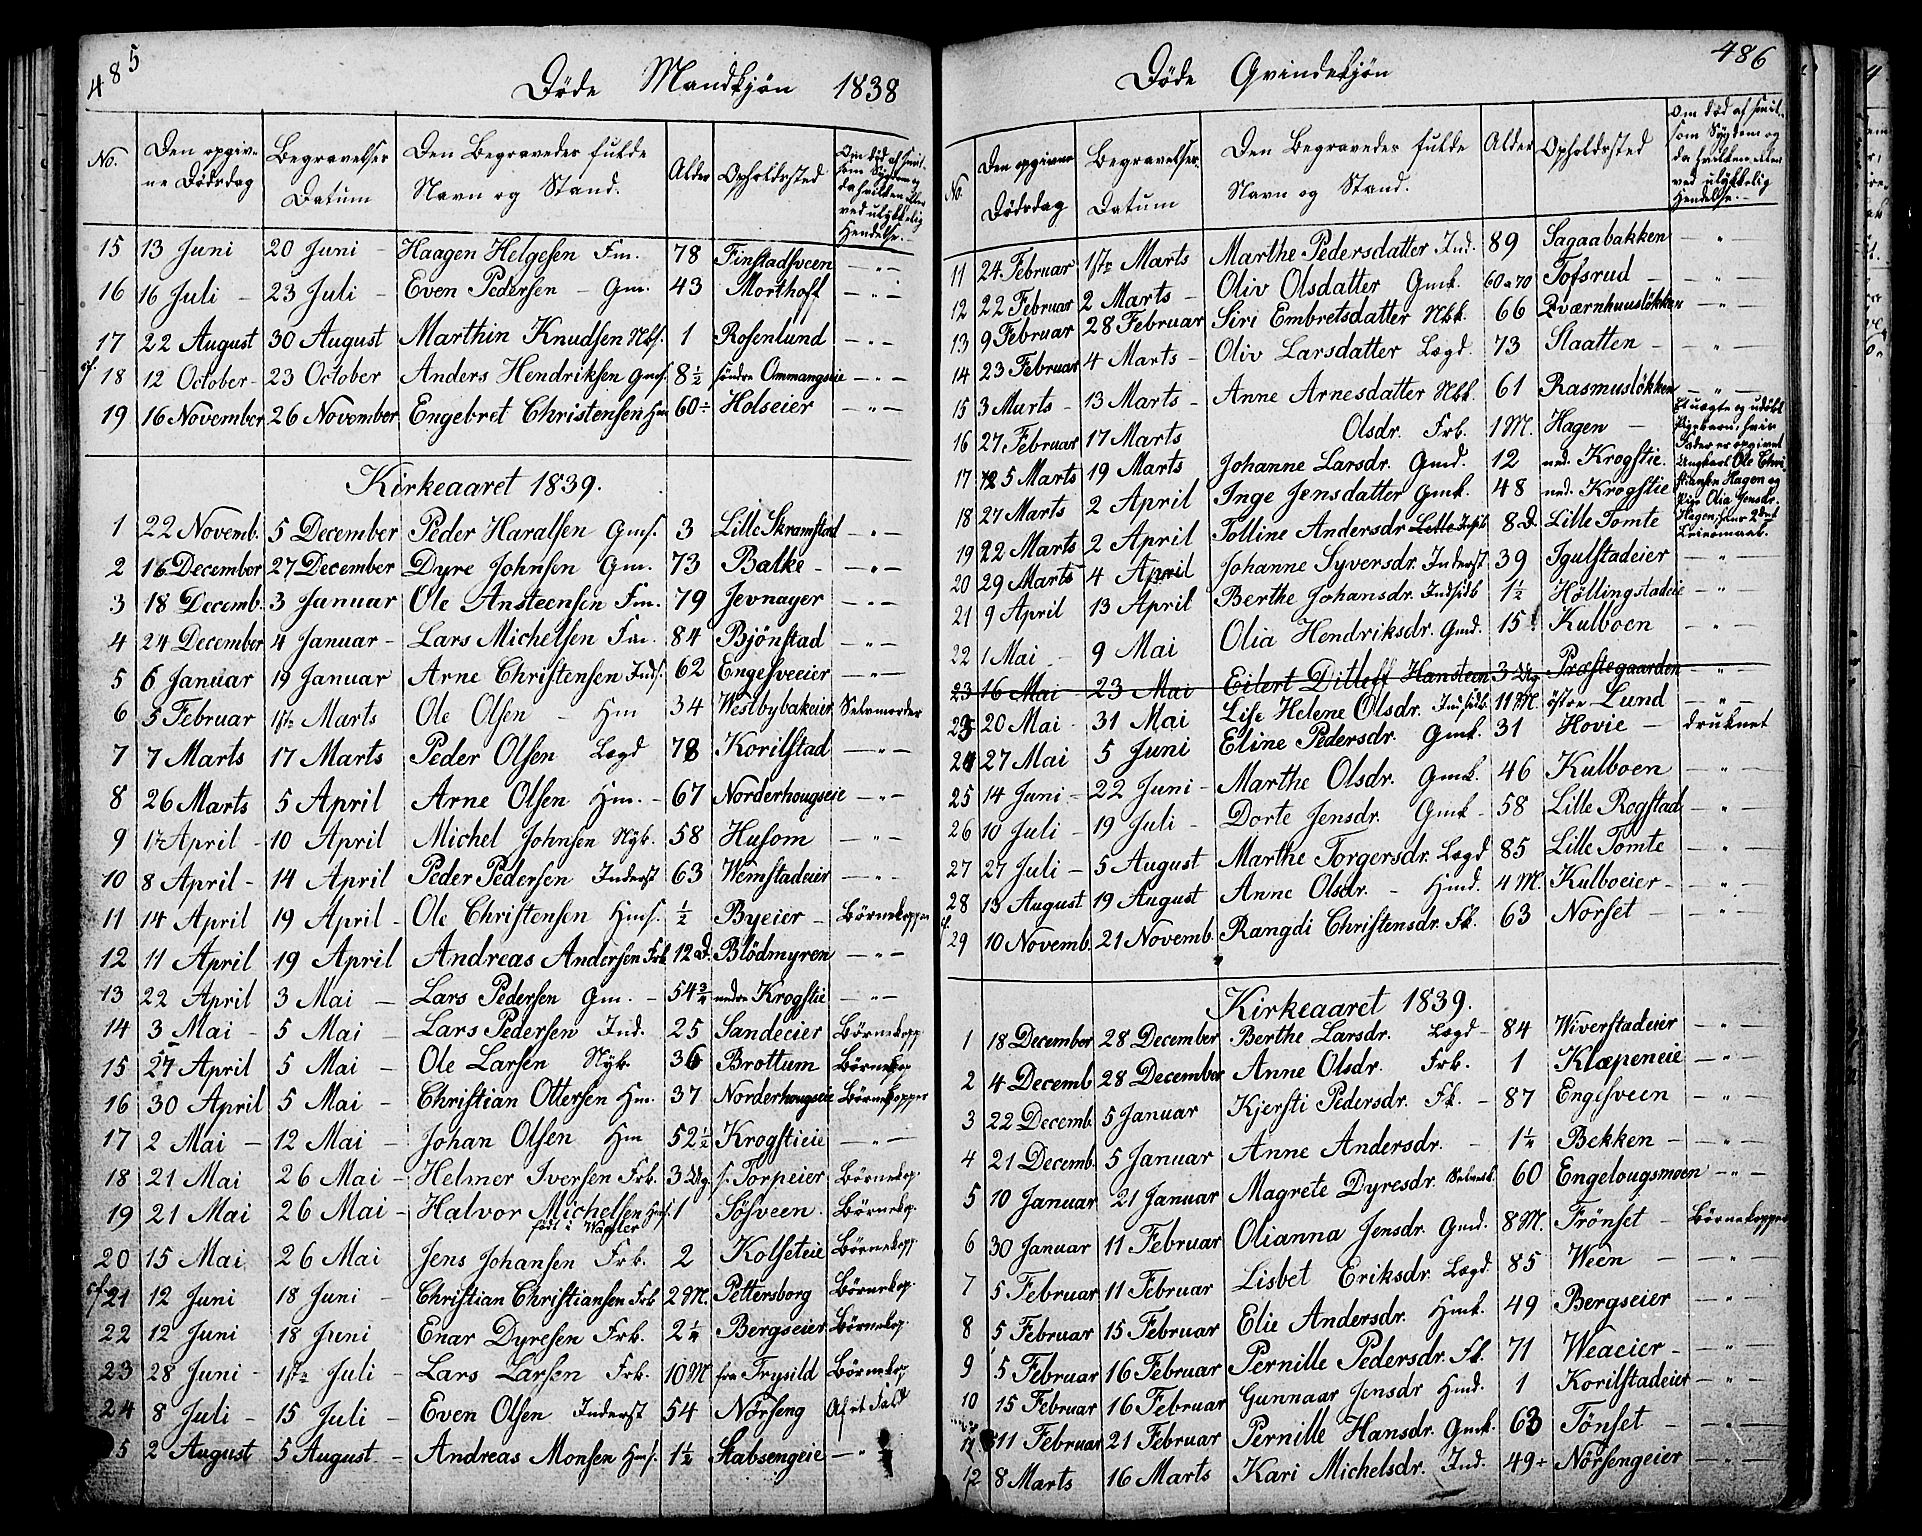 485
Döde Mandkjön 1838
No. Den opgivne Dödsdag Begravelses Datum Den Begravedes fulde Navn og Stand. Alder Opholdssted Om död af smitsom Sygdom og da hvilken eller ved ulykkelig Hendelse.
15 13 Juni 20 Juni - Haagen Helgesen Fm. 78 Finstadsveen — " —
16 16 Juli - 23 Juli - Even Pedersen - Gm. 43 Morthoff — " —
17 22 August 30 August Marthin Knudsen Nbs. 1 Rosenlund — " —
18 12 October - 23 October Anders Hendriksen Gms. 8½ söndre Ommangseie — " —
19 16 November 26 November Engebret Christensen Hm 60÷ Holseier — " —
Kirkeaaret 1839.
1 22 Novemb. 5 December Peder Haralsen Gms. 3 Lille Skramstad — " —
2 16 December 27 December Dyre Johnsen Gm. 73 Balke - — " —
3 18 Decemb. 3 Januar Ole Ansteensen Fm. 79 Jevnager — " —
4 24 December 4 Januar - Lars Michelsen Fm. 84 Bjönstad — " —
5 6 Januar 19 Januar Arne Christensen Inds. 62 Engesveeier — " —
6 5 Februar 1ste Marts Ole Olsen - Hm 34 Westbybakeier Selvmorder
7 7 Marts 17 Marts Peder Olsen Lægd 78 Korilstad — " —
8 26 Marts 5 April Arne Olsen Hm. - 67 Norderhougseie — " —
9 April - 10 April Michel Johnsen Nyb. 58 Husom — " —
10 8 April - 14 April Peder Pedersen Inderst 63 Wemstadeier — " —
11 14 April 19 April - Ole Christensen Hms. ½ Byeier - Börnekopper
12 11 April 19 April Andreas Andersen Frb. 12 D. Blödmyren — " —
13 22 April 3 Mai - Lars Pedersen Gm. - 54¾ nedre Krogstie — " —
14 3 Mai - 5 Mai - Lars Pedersen Ind. 25 Sandeeier Börnekopp.
15 27 April 5 Mai - Ole Larsen Nyb. 36 Brottum Börnekop
16 30 April 5 Mai - Christian Ottersen Hm. 37 Norderhougseie Börnekopper
17 2 Mai - 12 Mai - Johan Olsen Hm 52½ Krogstieie — " —
18 21 Mai 26 Mai - Helmer Iversen Frb. 3 Dg. s. Torpeier Börnekop.
19 21 Mai 26 Mai - Halvor Michelsen Hms. 1 Sösveen. Börnekop.
födt i Wangler
20 15 Mai 26 Mai Jens Johansen Frb. 2 Kolseteie Börnekopp.
21 12 Juni 18 Juni - Christian Christiansen Frb 2 M. Pettersborg Börnekop.
22 12 Juni 18 Juni Enar Dyresen Frb. 2¼ Bergseier Börnekop.
23 28 Juni - 1ste Juli - Lars Larsen Frb. 10 M fra Trysild Börnekop
24 8 Juli - 15 Juli - Even Olsen Inderst 54 Nörseng Af et Fald
25 2 August 5 August - Andreas Monsen Hms. 1½ Stabsengeie — " —
486
Döde Qvindekjön
No. Den opgivne Dödsdag Begravelses Datum Den Begravedes fulde Navn og Stand. Alder Opholdssted Om död af smitsom Sygdom og da hvilken eller ved ulykkelig Hendelse.
11 24 Februar 1ste Marts Marthe Pedersdatter Ind. 89 Sagaabakken — " —
12 22 Februar 2 Marts - Oliv Olsdatter Gmk. 60 a 70 Tofsrud - — " —
13 9 Februar 28 Februar Siri Embretsdatter Nbk. 66 Qværnhuusløkken — " —
14 23 Februar 4 Marts - Oliv Larsdatter Lægd. 73 Slaatten - — " —
15 3 Marts - 13 Marts - Anne Arnesdatter Nbk. 61 Rasmusløkken — " —
16 27 Februar 17 Marts Olsdr. Frb. 1 M. Hagen - Et uægte og udöbt Pigebarn, hvis Fader er opgivet Ungkarl Ole Christiansen Hagen og Pige Olia Jensdr. Hagen; hans 2det Leiermaal.
17 5 Marts 19 Marts Johanne Larsdr. Gmd. 12 ned. Krogstie.
18 27 Marts 2 April Inge Jensdatter Gmk. 48 ned. Krogstie
19 22 Marts 2 April Tolline Andersdr. 8 D. Lille Tomte
20 29 Marts 4 April Johanne Syversdr. Inderst 39 Igulstadeier — " —
21 9 April 13 April Berthe Johansdr. Indsidb 1½ Höllingstadeie — " —
22 1 Mai - 9 Mai Olia Hendriksdr. Gmd. 15 Kulboen — " —
23 16 Mai 23 Mai Eilert Ditleff Hansteen 3 Dg Præstegaarden — " —
23 20 Mai - 31 Mai Lise Helene Olsdr. Indsidb. 11 M. östre Lund — " —
24 27 Mai 5 Juni Eline Pedersdr. Gmk. 31 Hovie - druknet
25 14 Juni - 22 Juni - Marthe Olsdr. Gmk. 46 Kulboen — " —
26 10 Juli - 19 Juli - Dorte Jensdr. Gmk - 58 Lille Rogstad — " —
27 27 Juli - 5 August Marthe Torgersdr. Lægd 85 Lille Tomte — " —
28 13 August 19 August Anne Olsdr. - Hmd. 4 M. Kulboeier - — " —
29 10 Novemb. 21 Novemb. Rangdi Christensdr. Fk. 63 Norset - — " —
Kirkeaaret 1839.
1 18 December 28 December Berthe Larsdr. Lægd - 84 Wiverstadeier — " —
2 4 Decemb. 28 December Anne Olsdr. Frb. 1 Klæpeneie — " —
3 22 Decemb. 5 Januar Kjersti Pedersdr. Fk. - 87 Engesveen — " —
4 21 Decemb. 5 Januar Anne Andersdr. - 1¼ Bekken - — " —
5 10 Januar 21 Januar Magrete Dyresdr. 60 Engelougsmoen — " —
6 30 Januar 11 Februar Olianna Jensdr. Gmd. 8 M. Frönset - Börnekopper
7 5 Februar 11 Februar Lisbet Eriksdr. Lægd. 85 Ween - — " —
8 5 Februar 15 Februar Elie Andersdr. Hmk. 49 Bergseier — " —
9 5 Februar 16 Februar Pernille Pedersdr. Fk. 71 Weaeier - — " —
10 15 Februar 16 Februar Gunnaar Jensdr Hmd. 1 Korilstadeier — " —
11 11 Februar 21 Februar Pernille Hansdr. Gmk. 63 Tönset - — " —
12 8 Marts 16 Marts Kari Michelsdr. Ind. 49÷ Nörsengeier — " —